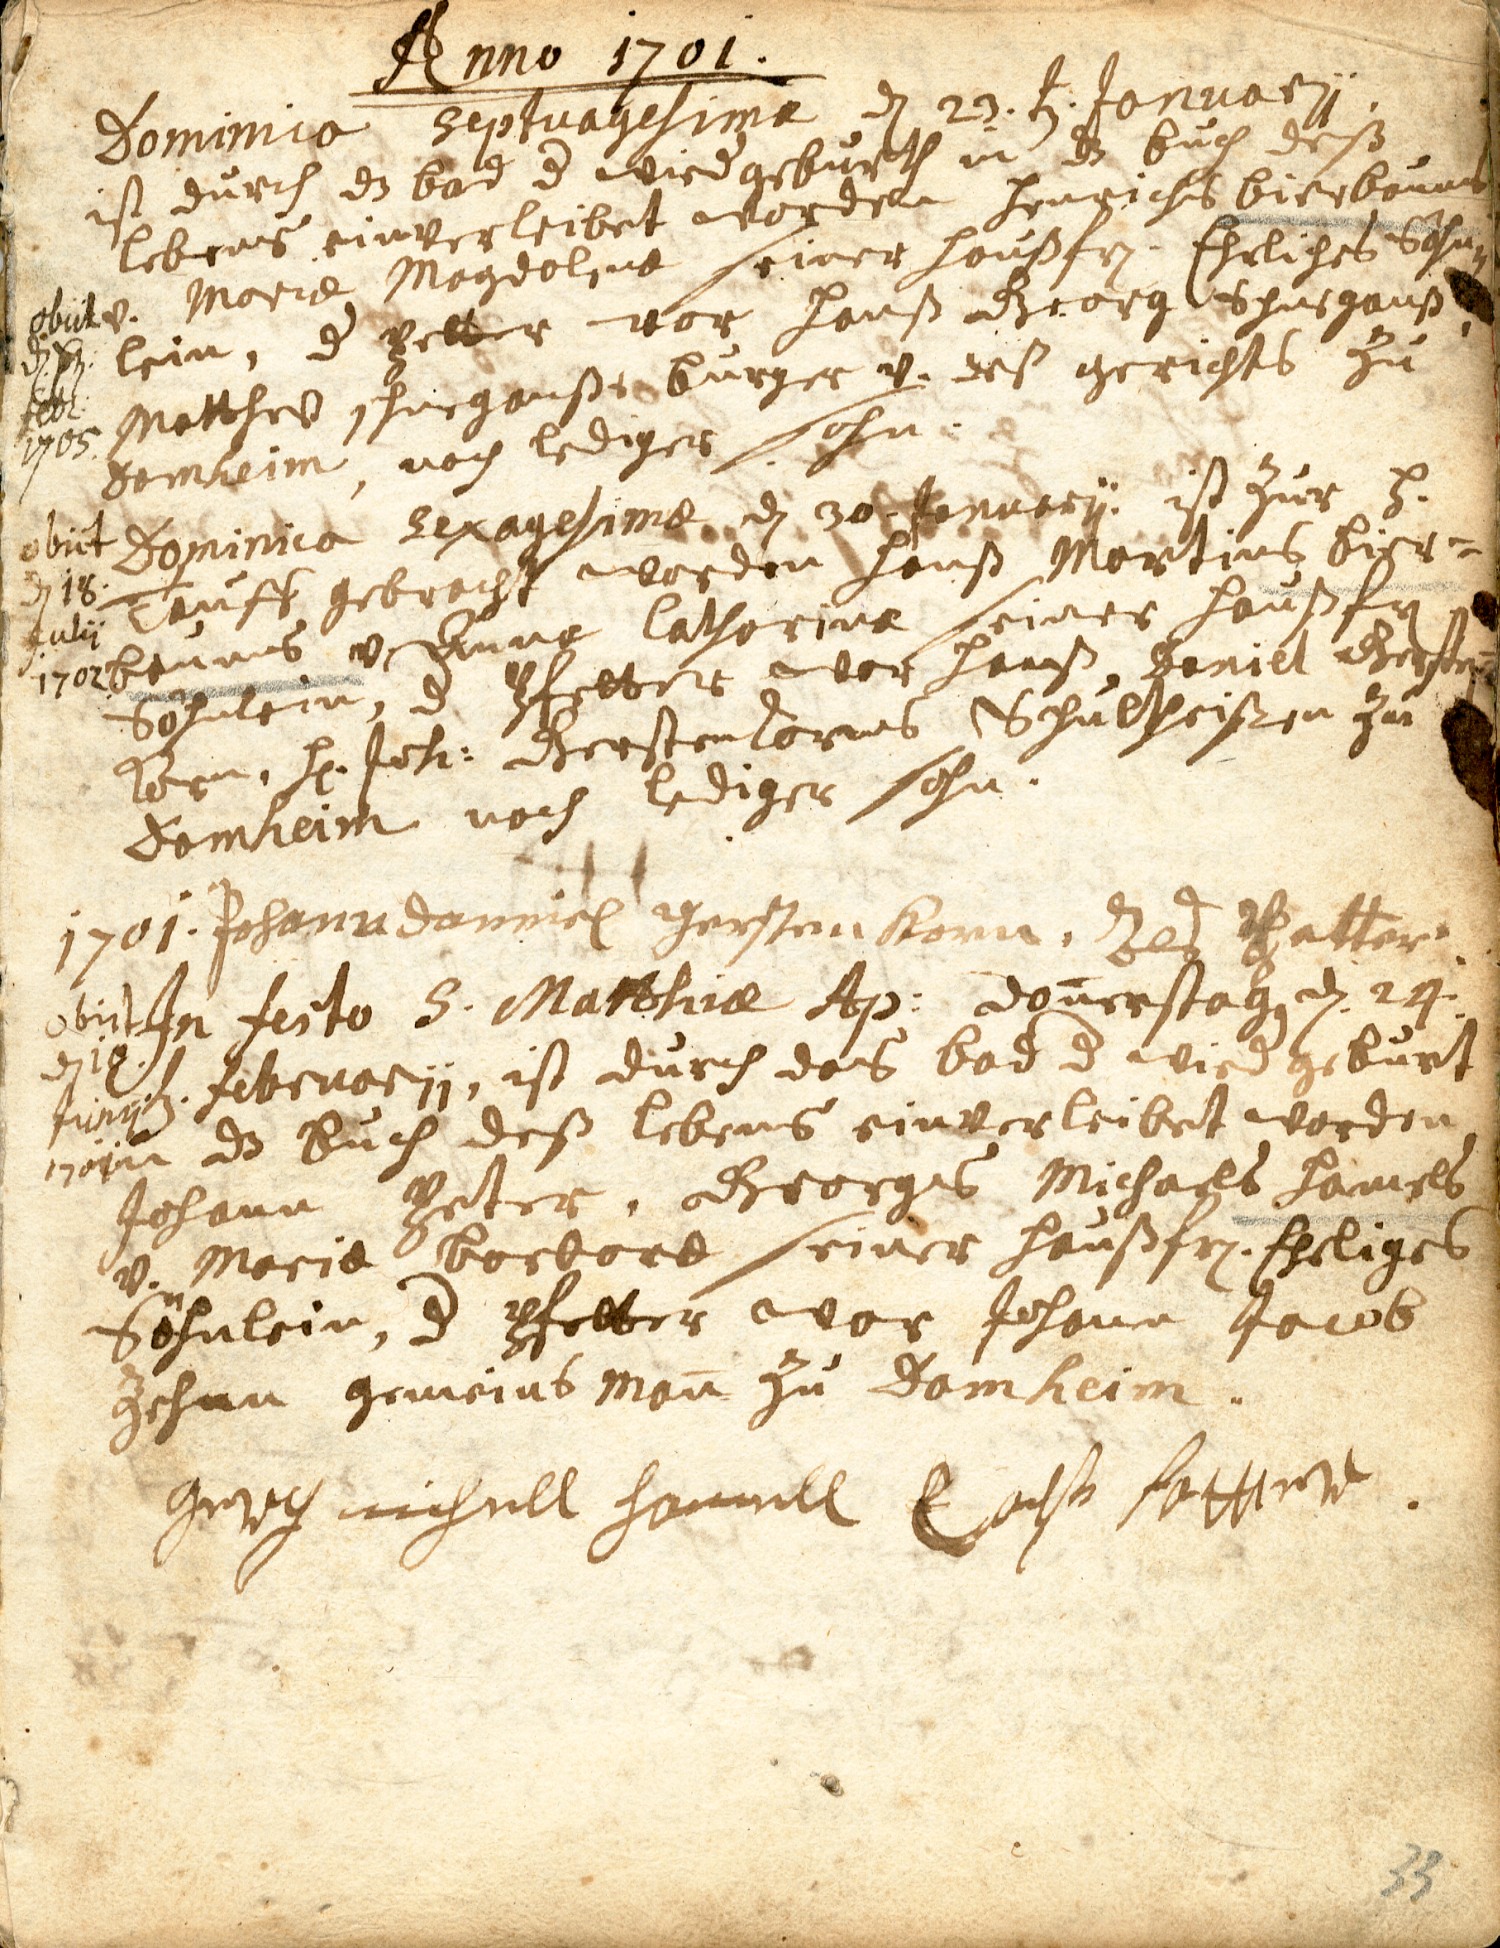 Anno 1701.
Dominica Septuagesimæ d. 23. Januarij.
ist durch dz bad d wiedgeburth in dz buch deß
lebens einverleibet worden Henrichs bierbaums
v. Mariæ Magdalenæ seiner haußfr. Ehrliches Söhn-
lein, d Petter war Hanß Georg Schneganß,
Matthes Schneganßes burger v. deß gerichts zu
Dornheim, noch lediger sohn.
obiit
d.
febr.
1705.
Dominica Sexagesimæ d 30. Januarij. ist zur H.
Tauff gebracht worden Hanß Martins bier-
baums v. Annæ Catharinæ seiner haußfr
Söhnlein, d Pfetter war Hanß Daniel Gersten-
korn, H. Joh: Gerstenkorns Schultheißen zu
Dornheim noch lediger sohn.
obiit
d 18.
Julij
1702
1701. Johann Danniel gerstenkorn, Petter.
In festo S. Matthiæ Ap: donnerstag d. 24.
februarij, ist durch das bad d wied geburt
in dz Buch deß lebens einverleibet worden
Johann Peter, Georges Michaels Hamels
v. Mariæ barbaræ seiner haußfr. Eheliges
Söhnlein, d Pfetter war Johann Jacob
Zehnn gemeins Mañ zu Dornheim.
obiit
d 18.
Junij
1701
michell hammell
33